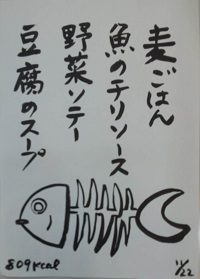 麦ごはん
魚のチリソース
野菜ソテー
豆腐のスープ
809kcal
11/22